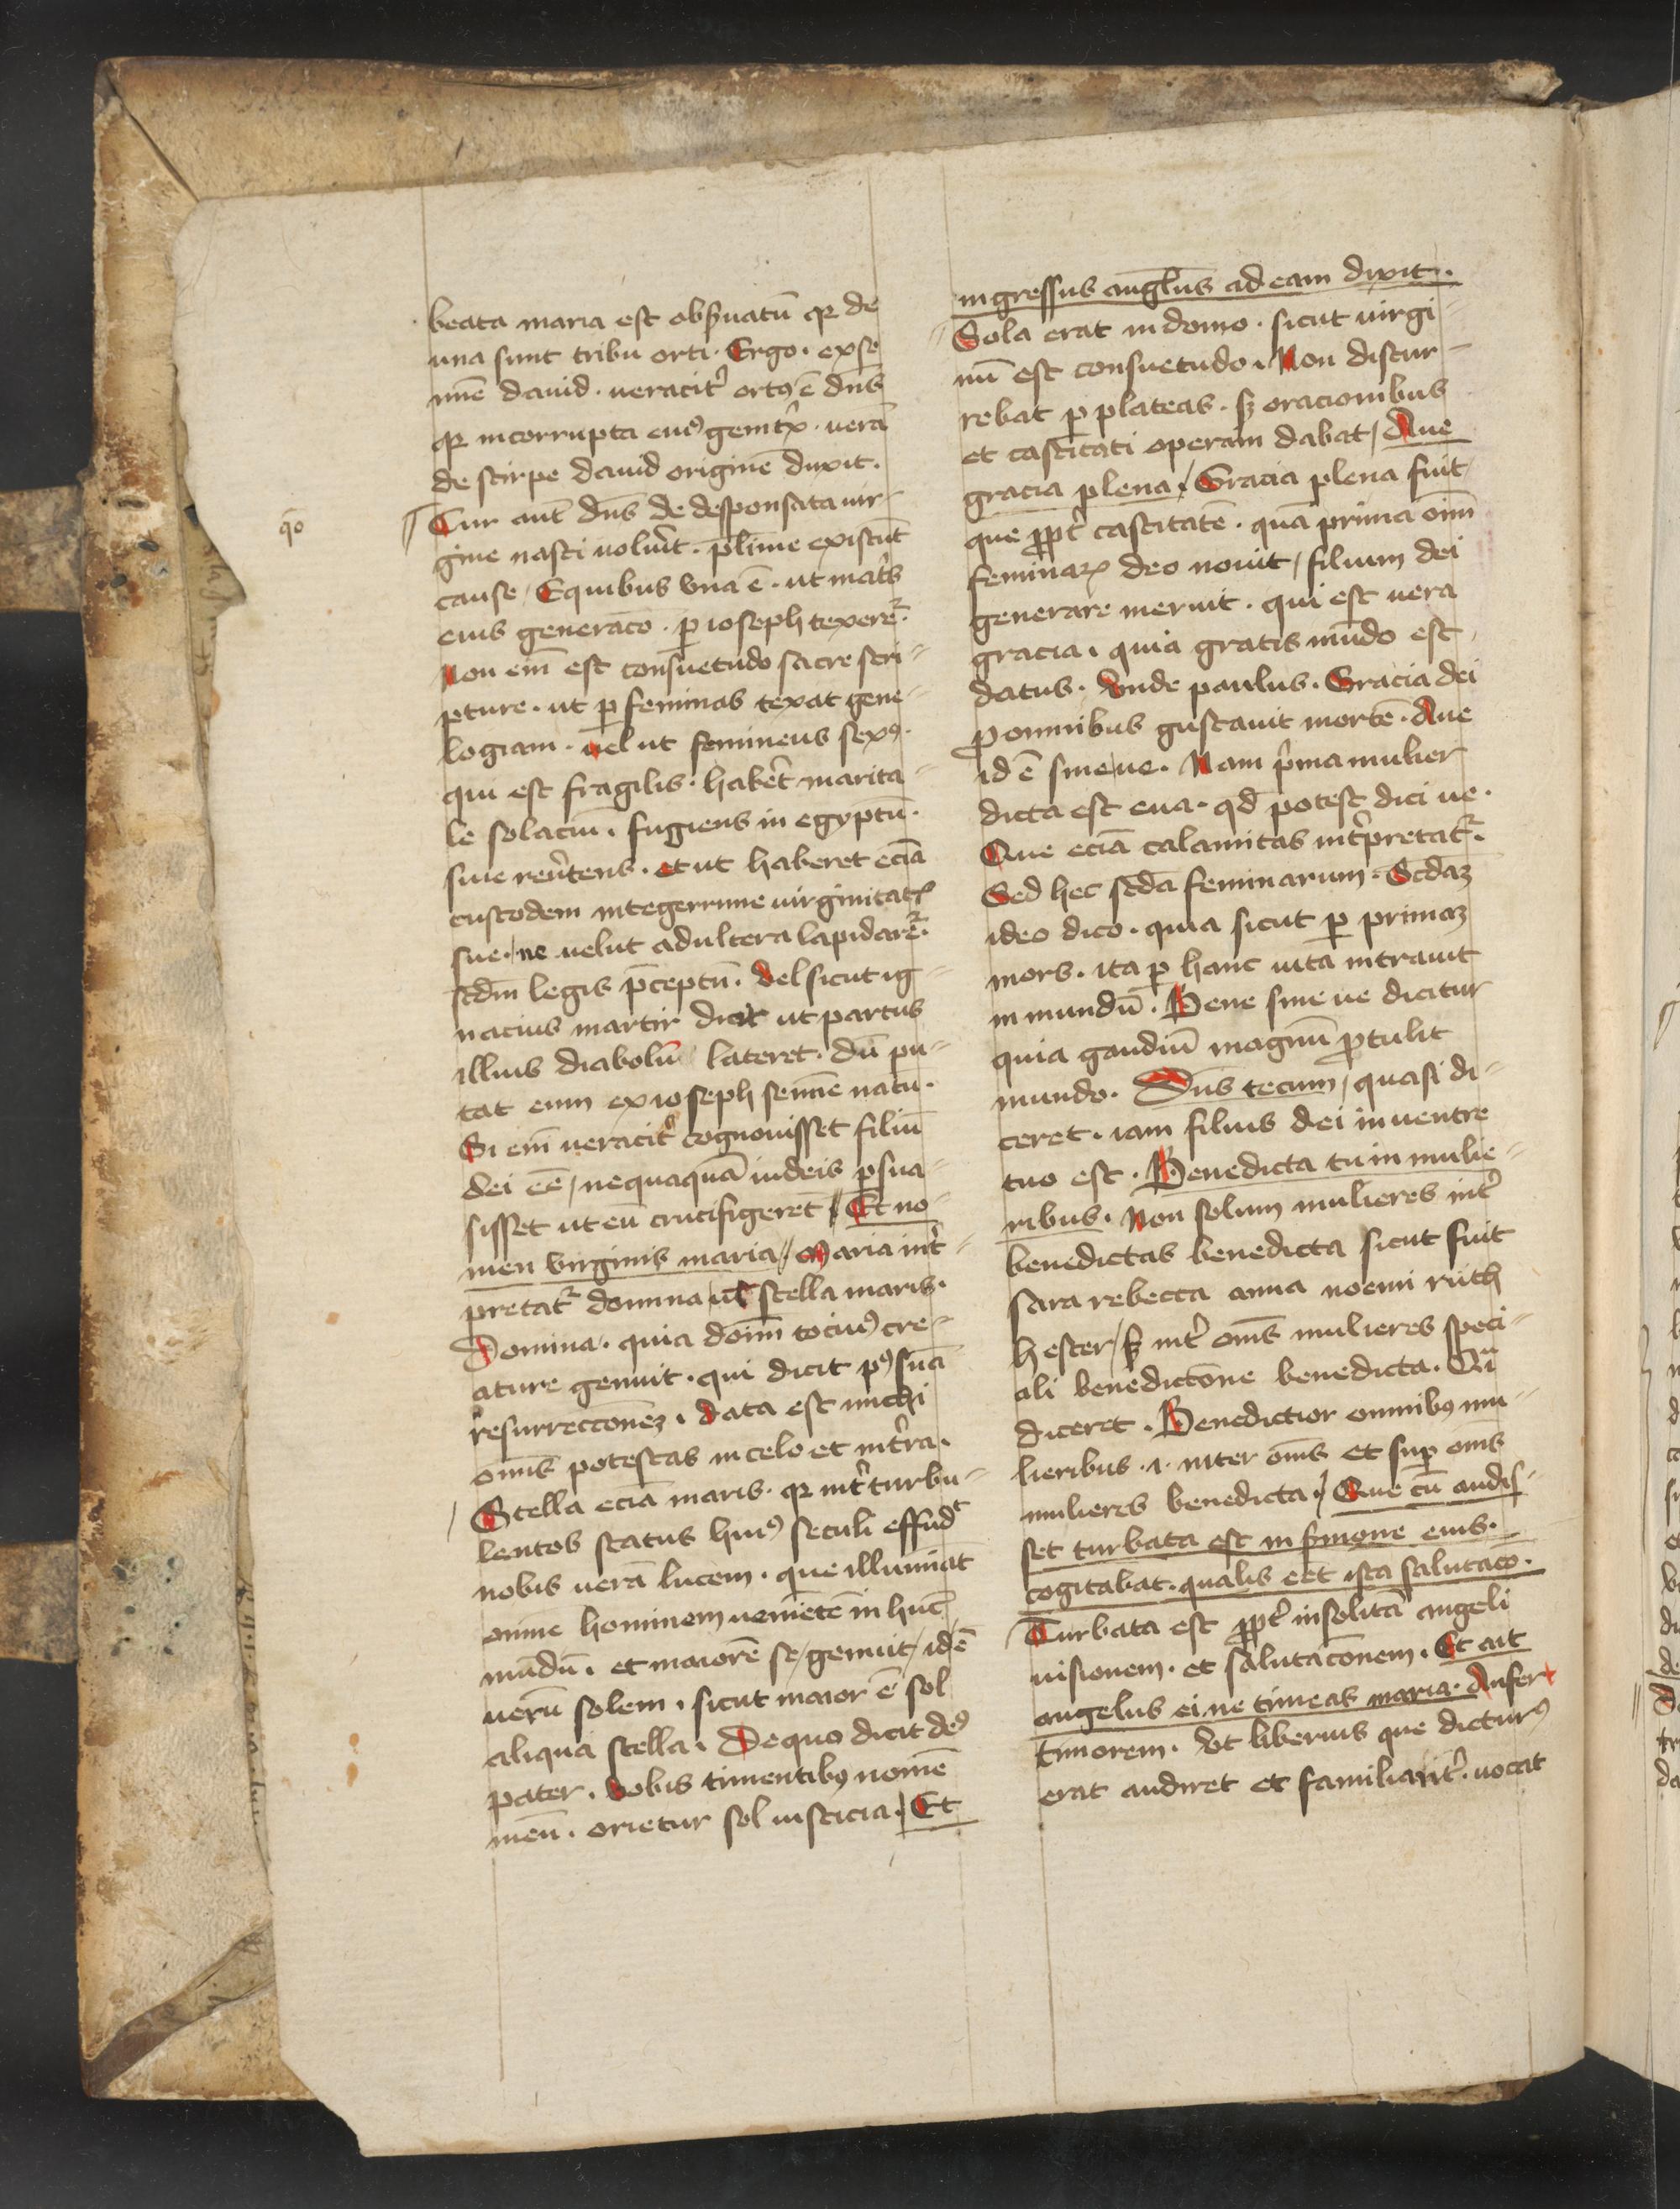 beata maria est obſ̑uatū qꝛ de
una sunt tribu orti. Ergo. ex se
mīe dauid. ueracit̑ ortꝰ ē dn̄s
qꝛ incorrupta eiꝰ genit̑x. uerā
de stirpe dauid originē duxit.
qō
Cur aūt dn̄s de desponsata uir-
gine nasci uoluīt. pl̄ime existūt
cause / E quibus vna ē. ut mat̑s
eius generaco̅. ꝑ ioseph texeret̑.
Non em̄ est consuetudo sacre scri-
pture. ut ꝑ feminas texat gene-
logiam. uel ut femineus sexꝰ.
qui est fragilis. habēt marita-
le solaciū. fugiens in egyptū.
siue reu̅tens. et ut haberet eciā
custodem integerrime uirginitatꝭ
sue. / ne uelut adultera lapidaret̑.
scd̄m legis p̄ceptū. vel sicut ig-
nacius martir dicit ut partus
illius diabolū lateret. dū pu-
tat eum ex ioseph semīe natū.
Si em̄ ueracit̑ cognouisset filiū
dei eē / nequaquā iudeis ꝑsua-
sisset ut eū crucifigeret / Et no-
men virginis maria // Maria int̑-
pretat̑ domina / ul̄ stella maris.
Domina. quia dom̄m tociꝰ cre-
ature genuit. qui dicit pꝰ suā
resurrecconeꝫ. data est michi
omīs potestas in celo et in t̑ra.
Stella eciā maris. qꝛ int̑ turbu-
lentos status huiꝰ seculi effudt
nobis uerā lucem. que illuminat
omnē hominem uenietē in hūc
mūdū. et maiorē se / genuit / id ē
uerū solem. sicut maior ē sol
aliqua stella. De quo dicit deꝰ
pater. vobis timentibꝰ nomē
meū. orietur sol iusticia. / Et
ingressus angl̄us ad eam dixit.
Sola erat in domo. sicut uirgi-
nū est consuetudo. Non discur-
rebat ꝑ plateas. sꝫ oracionibus
et castitati operam dabat / Aue
gracia plena. / Gracia plena fuit
que ꝓpt̑ castitatē. quā prima oīm
feminaꝝ deo nouit / filium dei
generare meruit. qui est uera
gracia. quia gratis mūdo est
datus. vnde paulus. Gracia dei
ꝓ omnibus gustauit mortē. Aue
id ē sine ue. Nam pima mulier
dicta est eua. qd̄ potest dici ue.
Que eciā calamitas int̑pretat̑.
Sed hec scd̄a feminarum. Scdaꝫ
ideo dico. quia sicut ꝑ primaꝫ
mors. ita ꝑ hanc uita intrauit
in mundū. Bene sine ue dicitur
quia gaudiū magnū ꝓtulit
mundo. Dn̄s tecum / quasi di-
ceret. iam filius dei in uentre
tuo est. Benedicta tu in mulie-
ribus. Non solum mulieres int̑
benedictas benedicta sicut fuit
sara rebecca anna noemi ruth
hester / sꝫ int̑ om̄s mulieres speci-
ali benedictōne benedicta. Cū
diceret. Benedictior omnibꝰ mu-
lieribus .i. inter om̄s et sup̄ om̄s
mulieres benedicta. / Que cū audis-
set turbata est in ſ̑mone eius.
cogitabat. qualis eēt ista salutaco̅.
Turbata est ꝓpt̑ insolitā angeli
uisionem. et salutacōnem. Et ait
angelus ei. ne timeas maria. Aufert
timorem. vt liberius que dicturꝰ
erat audiret et familiarit̑. uocat